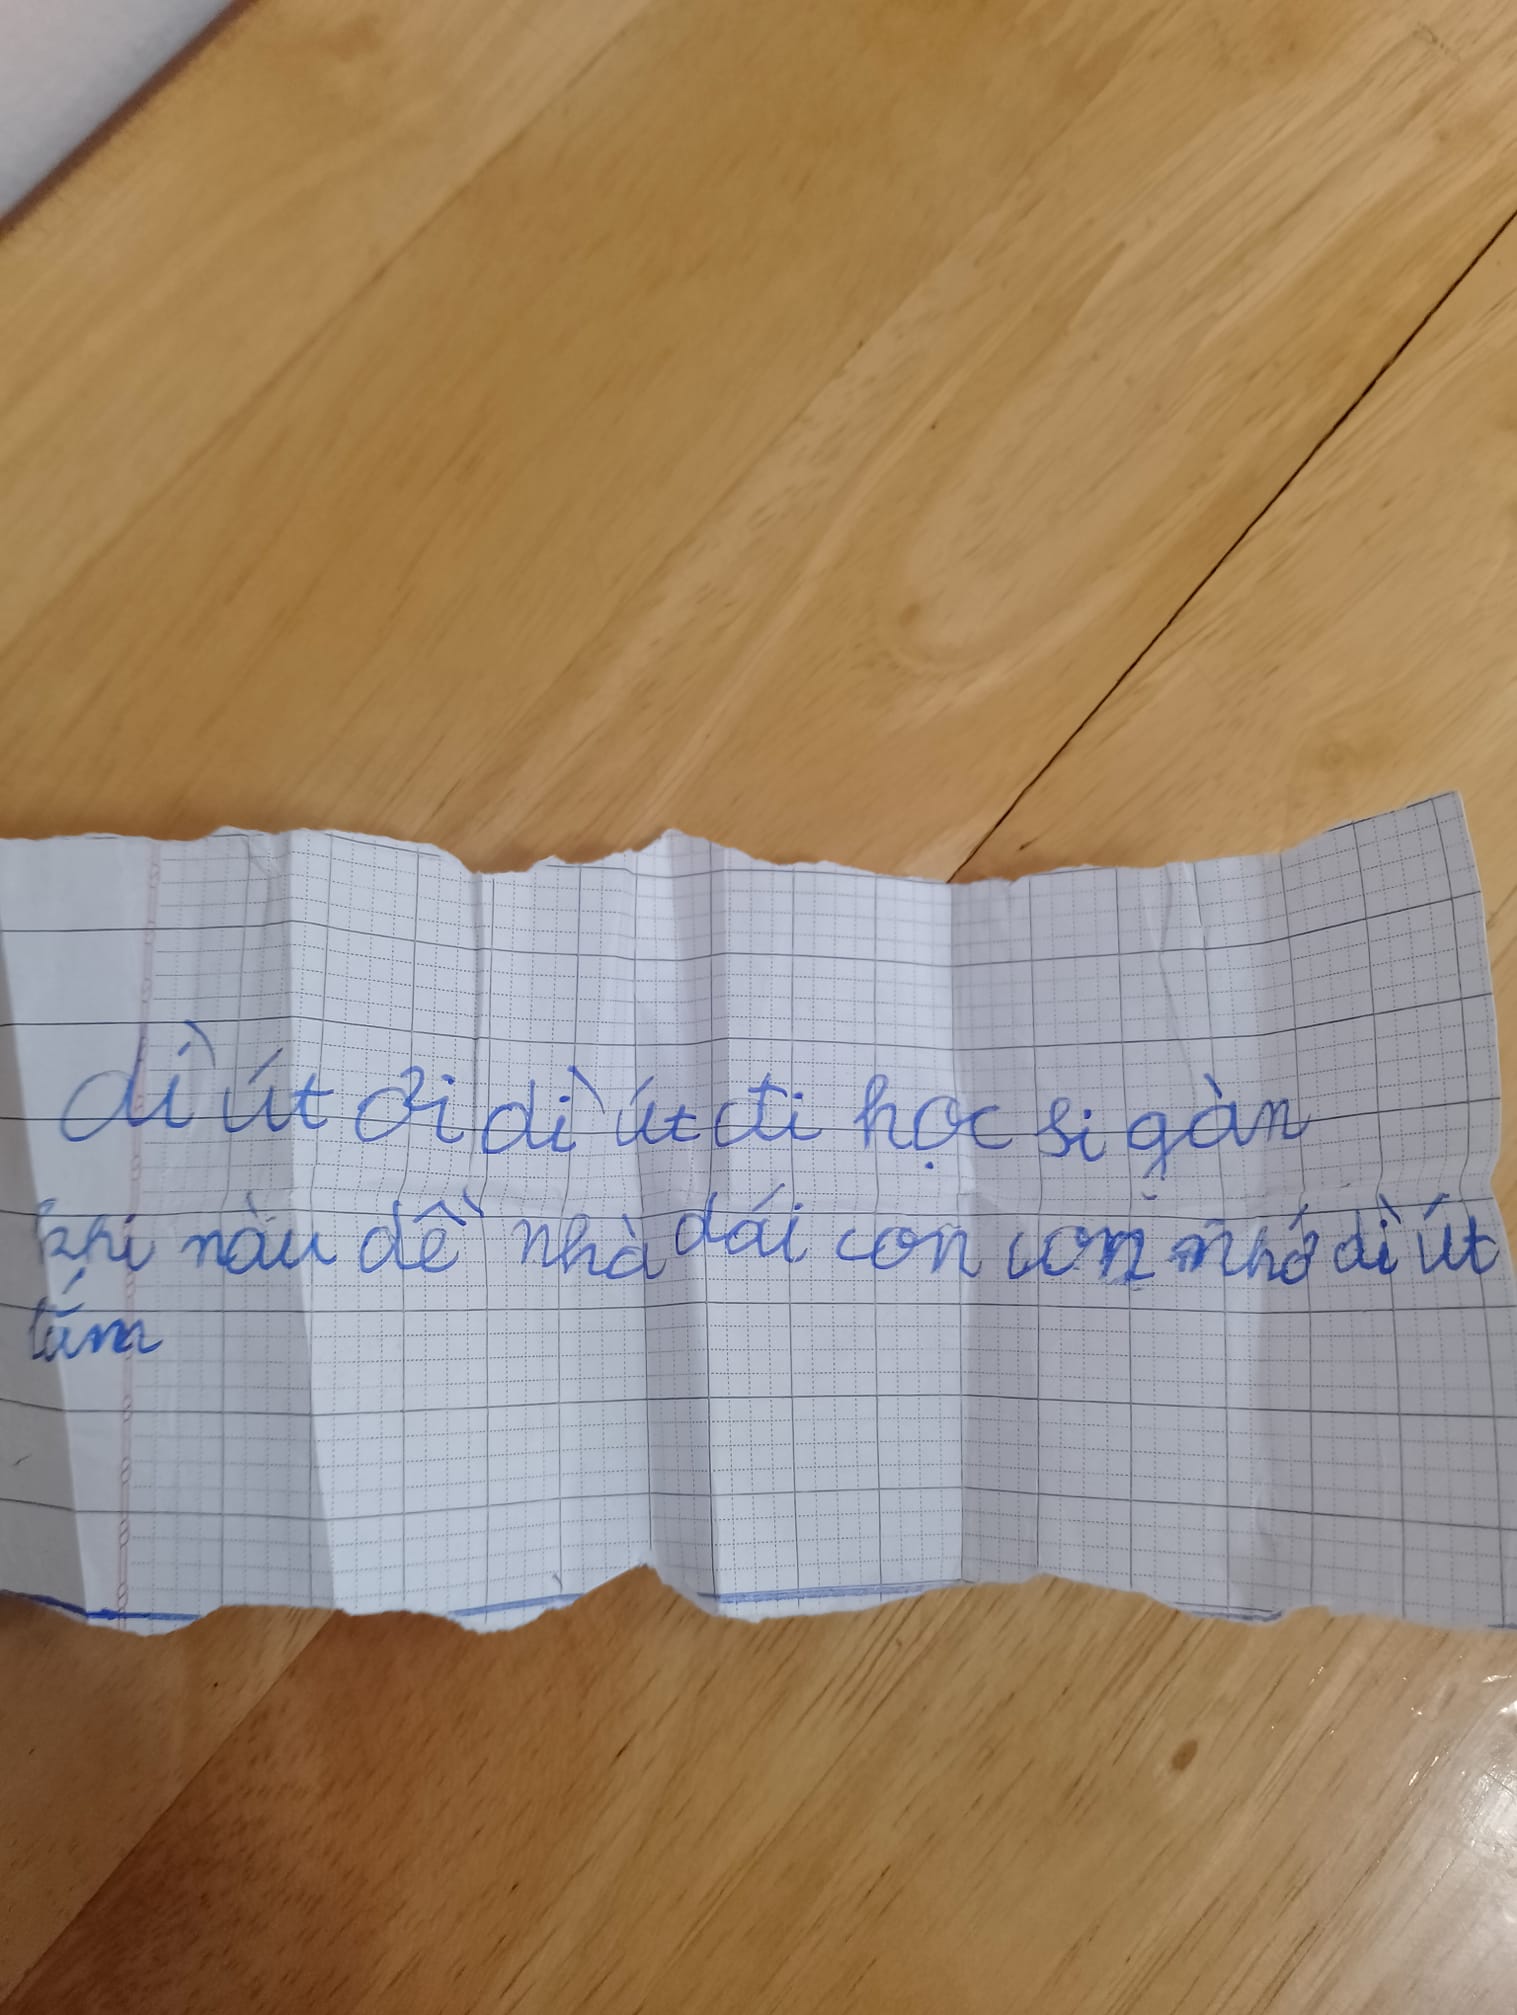 dì út ơi dì út đi học si gàn
khi nàu dề nhà dái con con nhớ dì út
lắm